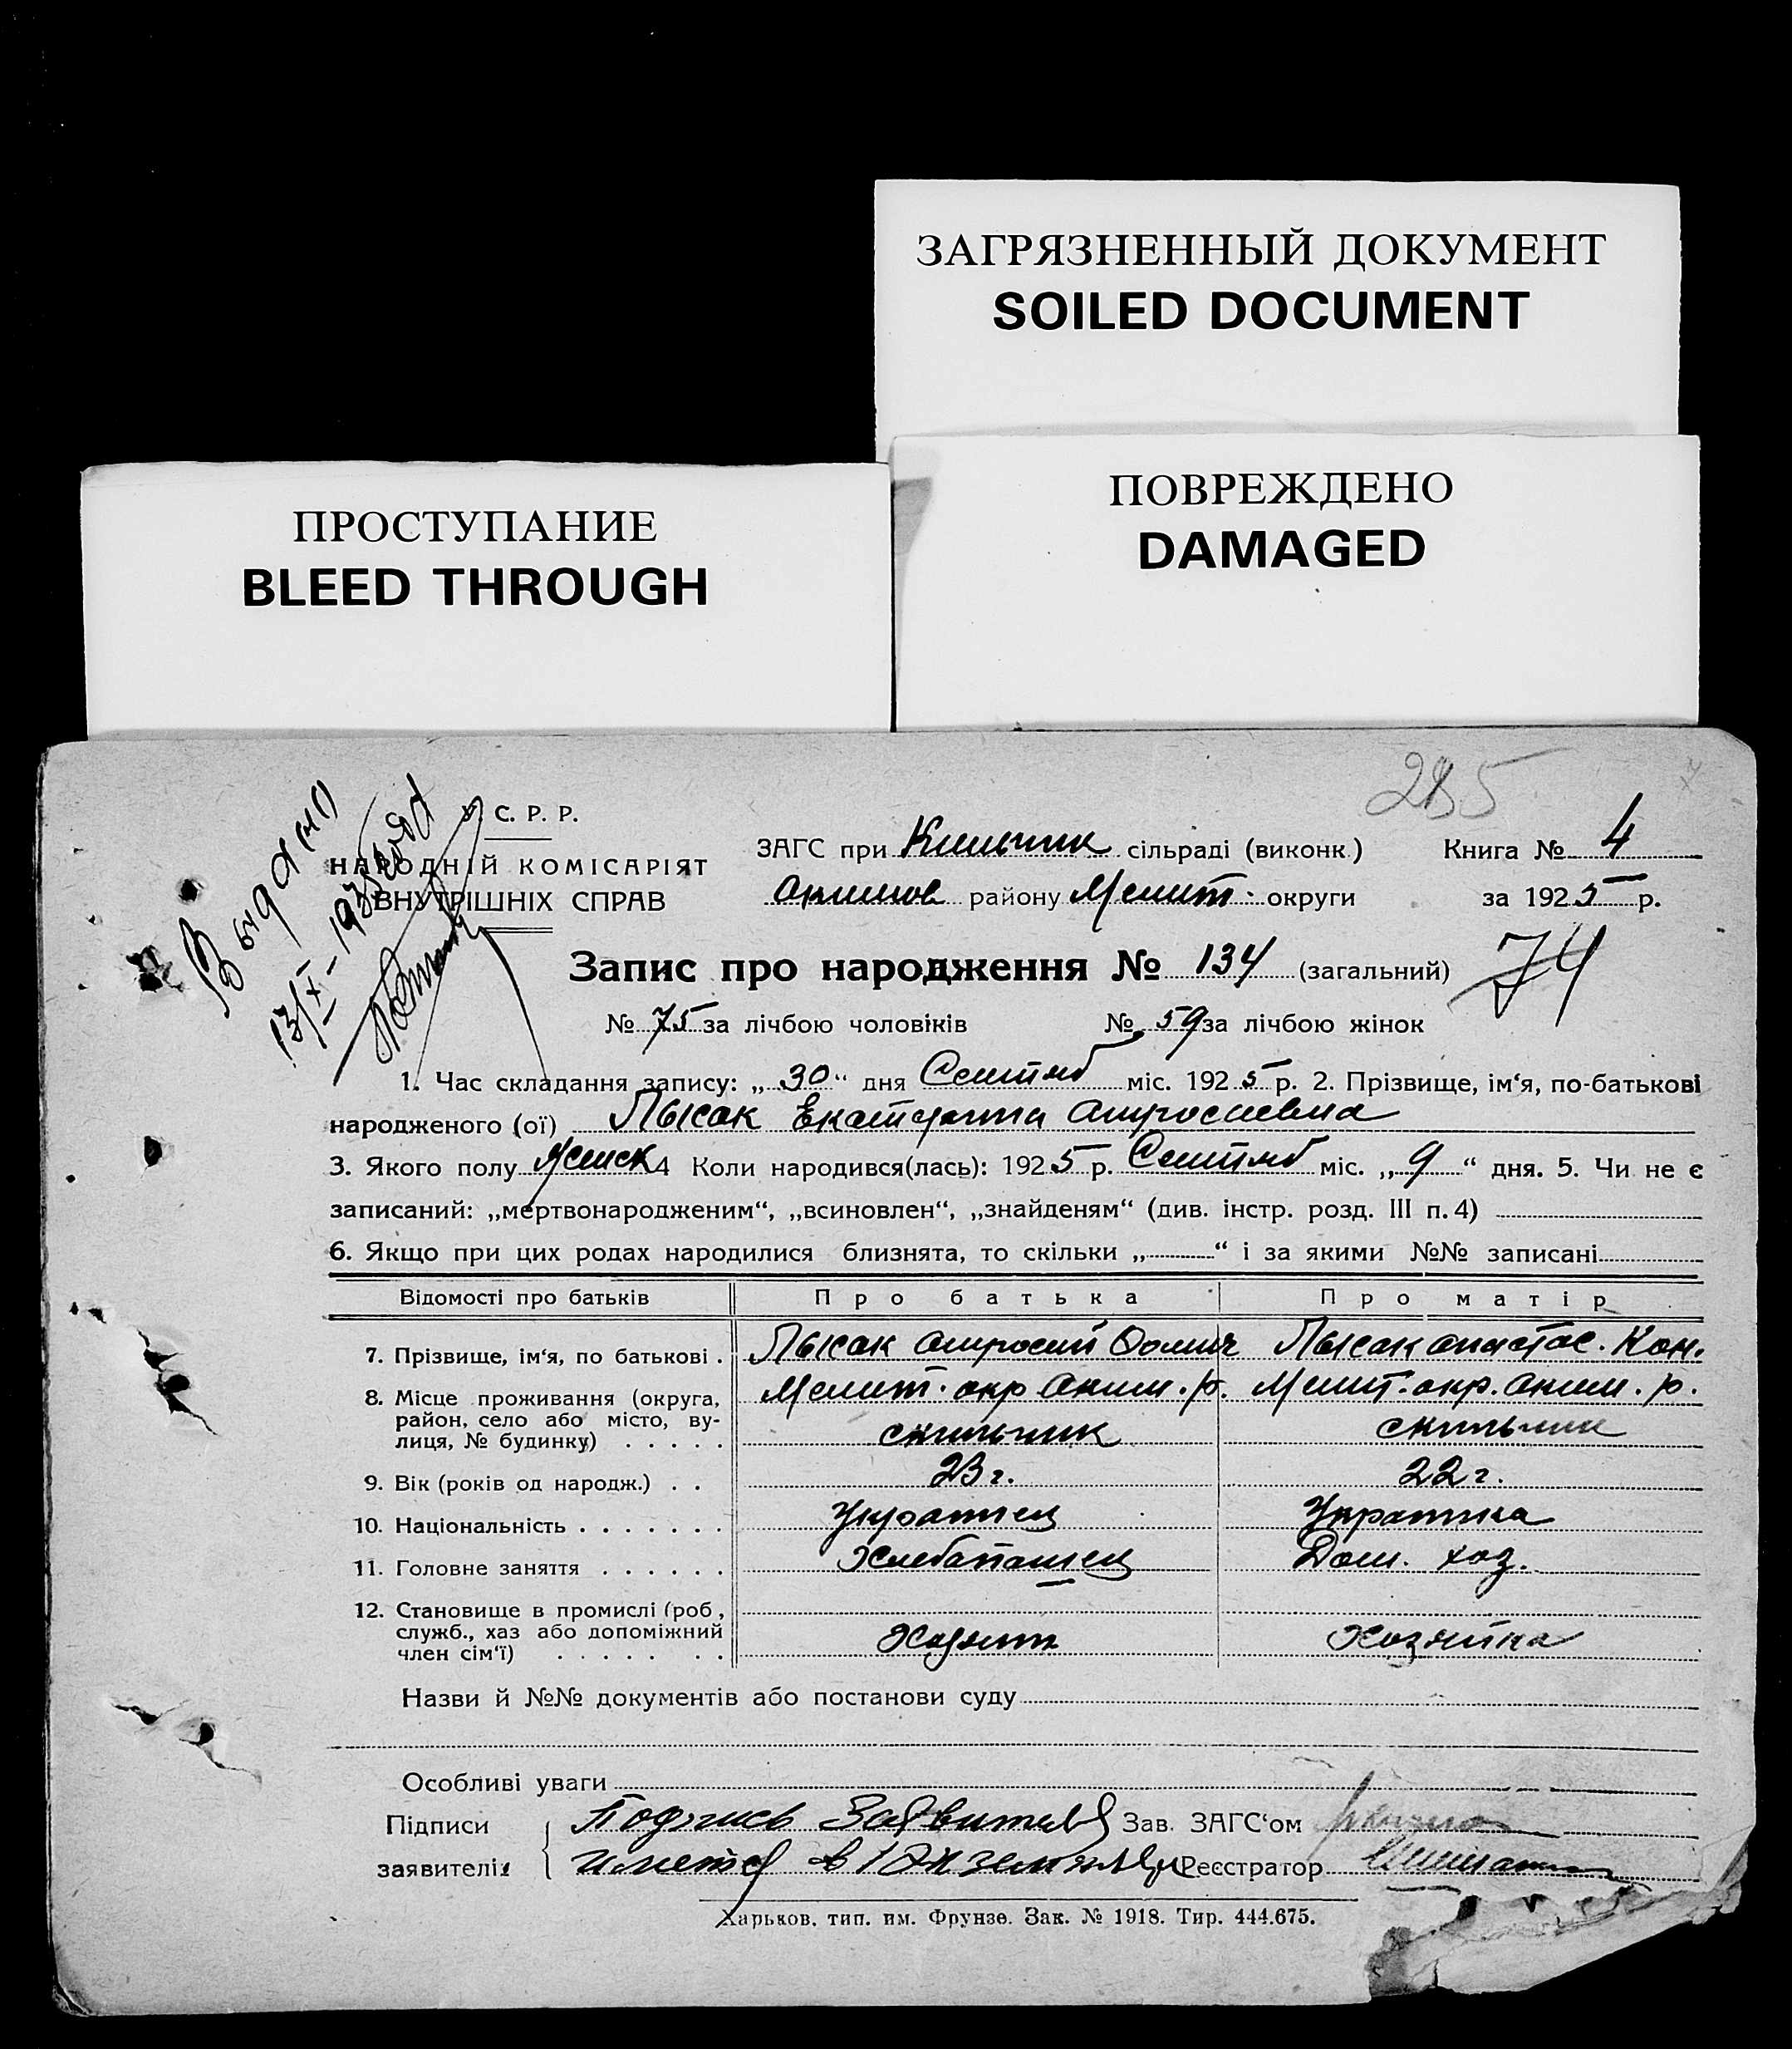 ЗАГРЯЗНЕННЫЙ ДОКУМЕНТ
SOILED DOCUMENT
ПРОСТУПАНИЕ
BLEED THROUGH
ПОВРЕЖДЕНО
DAMAGED
285
Выдано
13/X-1935 года
У. С. Р. Р.
НАРОДНІЙ КОМІСАРІЯТ
ВНУТРІШНІХ СПРАВ
ЗАГС при Кильчик сільраді (виконк.) Книга № 4
Акимов району Мелит. округи за 1925 р.
Запис про народження № 134 (загальний) 74
№ 75 за лічбою чоловіків № 59 за лічбою жінок
1. Час складання запису: „30“ дня Сентяб міс. 1925 р. 2. Прізвище, ім‘я, по-батькові
народженого (ої) Лысак Екатерина Амросиевна
3. Якого полу Женск 4 Коли народився(лась): 1925 р. Сентяб міс. „9“ дня. 5. Чи не є
записаний: „мертвонародженим“, „всиновлен“, „знайденям“ (див. інстр. розд. III п. 4)
6. Якщо при цих родах народилися близнята, то скільки „ “ і за якими №№ записані
Відомості про батьків Про батька Про матір
7. Прізвище, ім‘я, по батькові . Лысак Амросий Лысак Анастас. Кон.
8. Місце проживання (округа, Мелит. окр Аким. р. Мелит. окр. Аким. р.
район, село або місто, ву-
лиця, № будинку) . . . . . с Кильчик с Кильчик
9. Вік (років од народж.) . . 23 г. 22 г.
10. Національність . . . . . . . Украинец Украинка
11. Головне заняття . . . . . . Хлебопашец Дом. хоз.
12. Становище в промислі (роб.,
служб., хаз або допоміжний
член сім‘ї) . . . . . . . Хозяин Хозяйка
Назви й №№ документів або постанови суду
Особливі уваги
Підписи Подпись Заявителя Зав. ЗАГС‘ом
заявителів имется в 1 Экземпляр Реєстратор
Харьков, тип. им. Фрунзе. Зак. № 1918. Тир. 444.675.